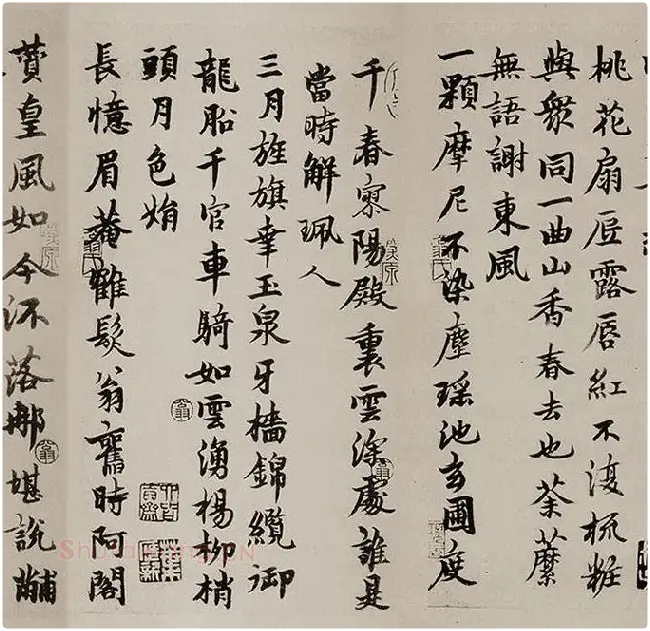 桃花扇底露唇紅不復梳粧
與眾同一曲山香春去也荼蘼
無語謝東風
一顆摩尼不染塵瑤池玄圃度
千春寥陽殿裏雲深處誰是
當時解珮人
三月旌旗幸玉泉牙檣錦纜御
龍船千官車騎如雲湧楊柳梢
頭月色娟
長憶眉菴鶴髮翁舊時阿閣
贊皇風如今流落那堪說黼